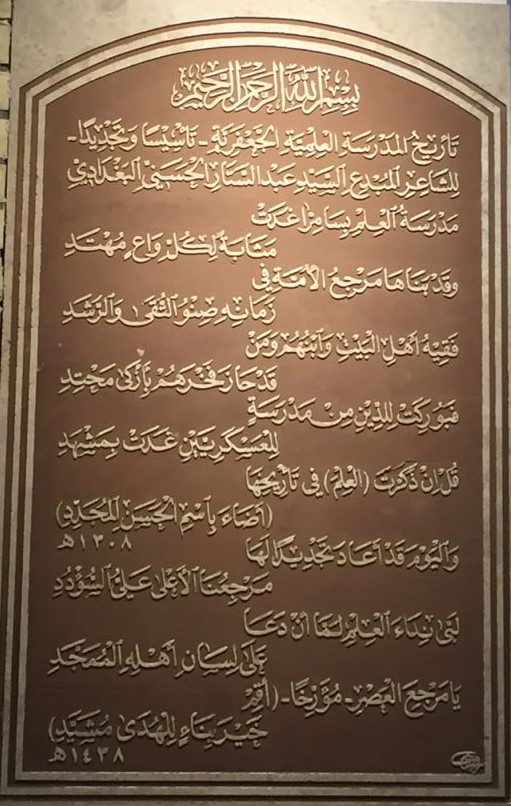 بِسْمِ اللهِ الرَّحْمنِ الرَّحِيمِ
تَأرِيخُ المَدْرَسَةِ العِلْمِيَّةِ الجَعْفَرِيَّةِ - تَأسِيْسًا وَتَجْدِيْدًا -
لِلشاعِرِ المُبْدِعِ السَّيِّدِ عَبْدِ السَّتَّارِ الحَسَنِيّ البَغْدَادِيّ
مَدْرَسَةُ العِلْمِ بِسَامِرَّا غَدَتْ
مَثَابَةً لِكُلِّ وَاعٍ مُهْتَدِ
وَقَدْ بَنَاهَا مَرْجِعُ الأُمَّةِ فِي
زَمَانِهِ صِنْوُ التُّقَى وَالرَّشَدِ
فَقِيْهُ أَهْلِ البَيْتِ وَابْنُهُمْ وَمَنْ
قَدْ حَازَ فَخْرَهُمْ بِأَزْكَى مَحْتِدِ
فَبُورِكَتْ لِلدِّيْنِ مِنْ مَدْرَسَةٍ
لِلعَسْكَرِيَّيْنِ غَدَتْ بِمَشْهَدِ
قُلْ إِنْ ذَكَرْتَ (العِلْمَ) فِي تَأرِيْخِهَا
(أَضَاءَ بِاسْمِ الحَسَنِ المُجَدِّدِ)
١٣٠٨هـ
وَاليَوْمَ قَدْ أَعَادَ تَجْدِيْدًا لَهَا
مَرْجِعُنَا الأَعْلَى عَلِيُّ السُّؤْدَدِ
لَبَّى نِدَاءَ العِلْمِ لَمَّا أَنْ دَعَا
عَلَى لِسَانِ أَهْلِهِ المُمَجَّدِ
يَا مَرْجِعَ العَصْرِ - مُؤَرِّخًا - (أَقِمْ
خَيْرَ بِنَاءٍ لِلْهُدَى مُشَيَّدِ)
١٤٣٨هـ